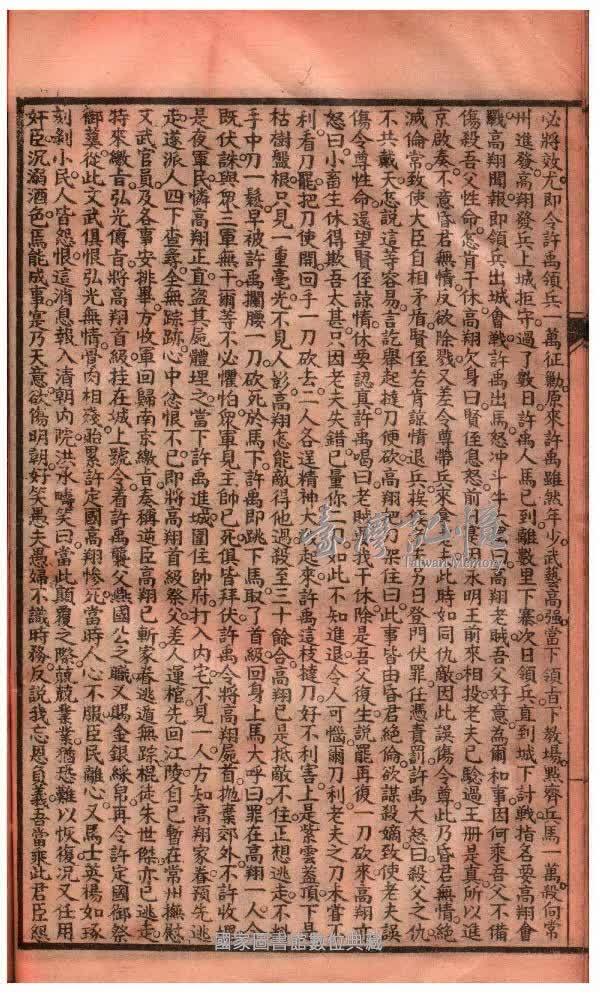 必將效尤即令許禹領兵一萬征勦原來許禹雖然年少武藝高强當下領旨下教場點齊兵馬一萬殺向常
州進發高翔發兵上城拒守過了數日許禹人馬已到離數里下寨次日領兵直到城下討戰指名要高翔會
戰高翔聞報即領兵出城會戰許禹出馬怒冲斗牛曰高翔老賊吾父好意為爾和事因何乘吾父不備
傷殺吾父性命怎肯干休高翔欠身曰賢侄息怒前因永明王前來相投老夫已驗過王册是真所以進
京啟奏不意昏君無情反欲除戮又差令尊帶兵來此時如同仇敵因此誤傷令尊此乃昏君無情絕
滅倫常致使大臣自相矛盾賢侄若肯諒情退兵挨老夫另日登門伏罪任憑責罰許禹大怒曰殺父之仇
不共戴天怎說這等容易言訖舉起撻刀便砍高翔把刀架住曰此事皆由昏君絕倫欲謀殺嫡致使老夫誤
傷令尊性命還望賢侄諒情休要認真許禹喝曰老賊要我干休除是吾父復生說罷再復一刀砍來高翔
怒曰小畜生休得欺吾太甚只因老夫失錯已量你二刀如此不知進退令人可惱爾刀利老夫之刀未嘗不
利看刀罷把刀使開回手一刀砍去二人各逞精神大殺起來許禹這枝撻刀好不利害上是紫雲蓋頂下是
枯樹盤根只見一重毫光不見人彰高翔怎能敵得他過殺至三十餘合高翔已是抵敵不住正想逃走不料
手中刀一鬆早被許禹攔腰一刀砍死於馬下許禹即跳下馬取了首級回身上馬大呼曰罪在高翔一人今
既伏誅與眾三軍無干爾等不必懼怕眾軍見主帥已死俱皆拜伏許禹令將高翔屍首抛棄郊外不許收埋
是夜軍民憐高翔正直盗其屍體埋之當下許禹進城圍住帥府打入內宅不見一人方知高翔家眷預先逃
走遂派人四下查尋全無踪跡心中忿恨不已即將高翔首級祭父差人運棺先回江陵自己暫在常州撫慰
文武官員及各事安排畢方收軍回歸南京繳旨奏稱逆臣高翔已斬家眷逃遁無踪棍徒朱世傑亦已逃走
特來繳旨弘光傳旨將高翔首級挂在城上號令着許禹襲父燕國公之職又賜金銀綵帛再令許定國御祭
御塟從此文武俱恨弘光無情骨肉相殘貽累許定國高翔慘死當時人心不服臣民離心又馬士英楊如琢
刻剝小民人皆怨恨這消息報入清朝內院洪水疇笑曰當此顛覆之際兢兢業業猶恐難以恢復况又任用
奸臣沉溺酒色焉能成事寔乃天意欲傷明朝好笑愚夫愚婦不識時務反說我忘恩負義吾當乘此君臣怨
臺灣記憶
Taiwan Memory
國家圖書館數位典藏